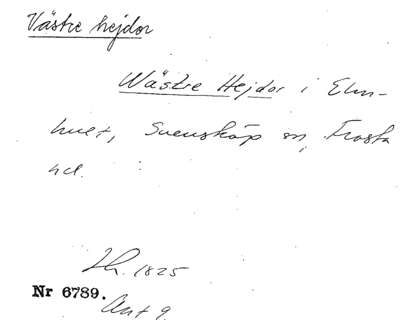 Västre hejdor
Wästre Hejdor i Elm-
hult, Svensköp sn, Frosta
hd.
Lh. 1825
Nr 6789.
Akt 9.